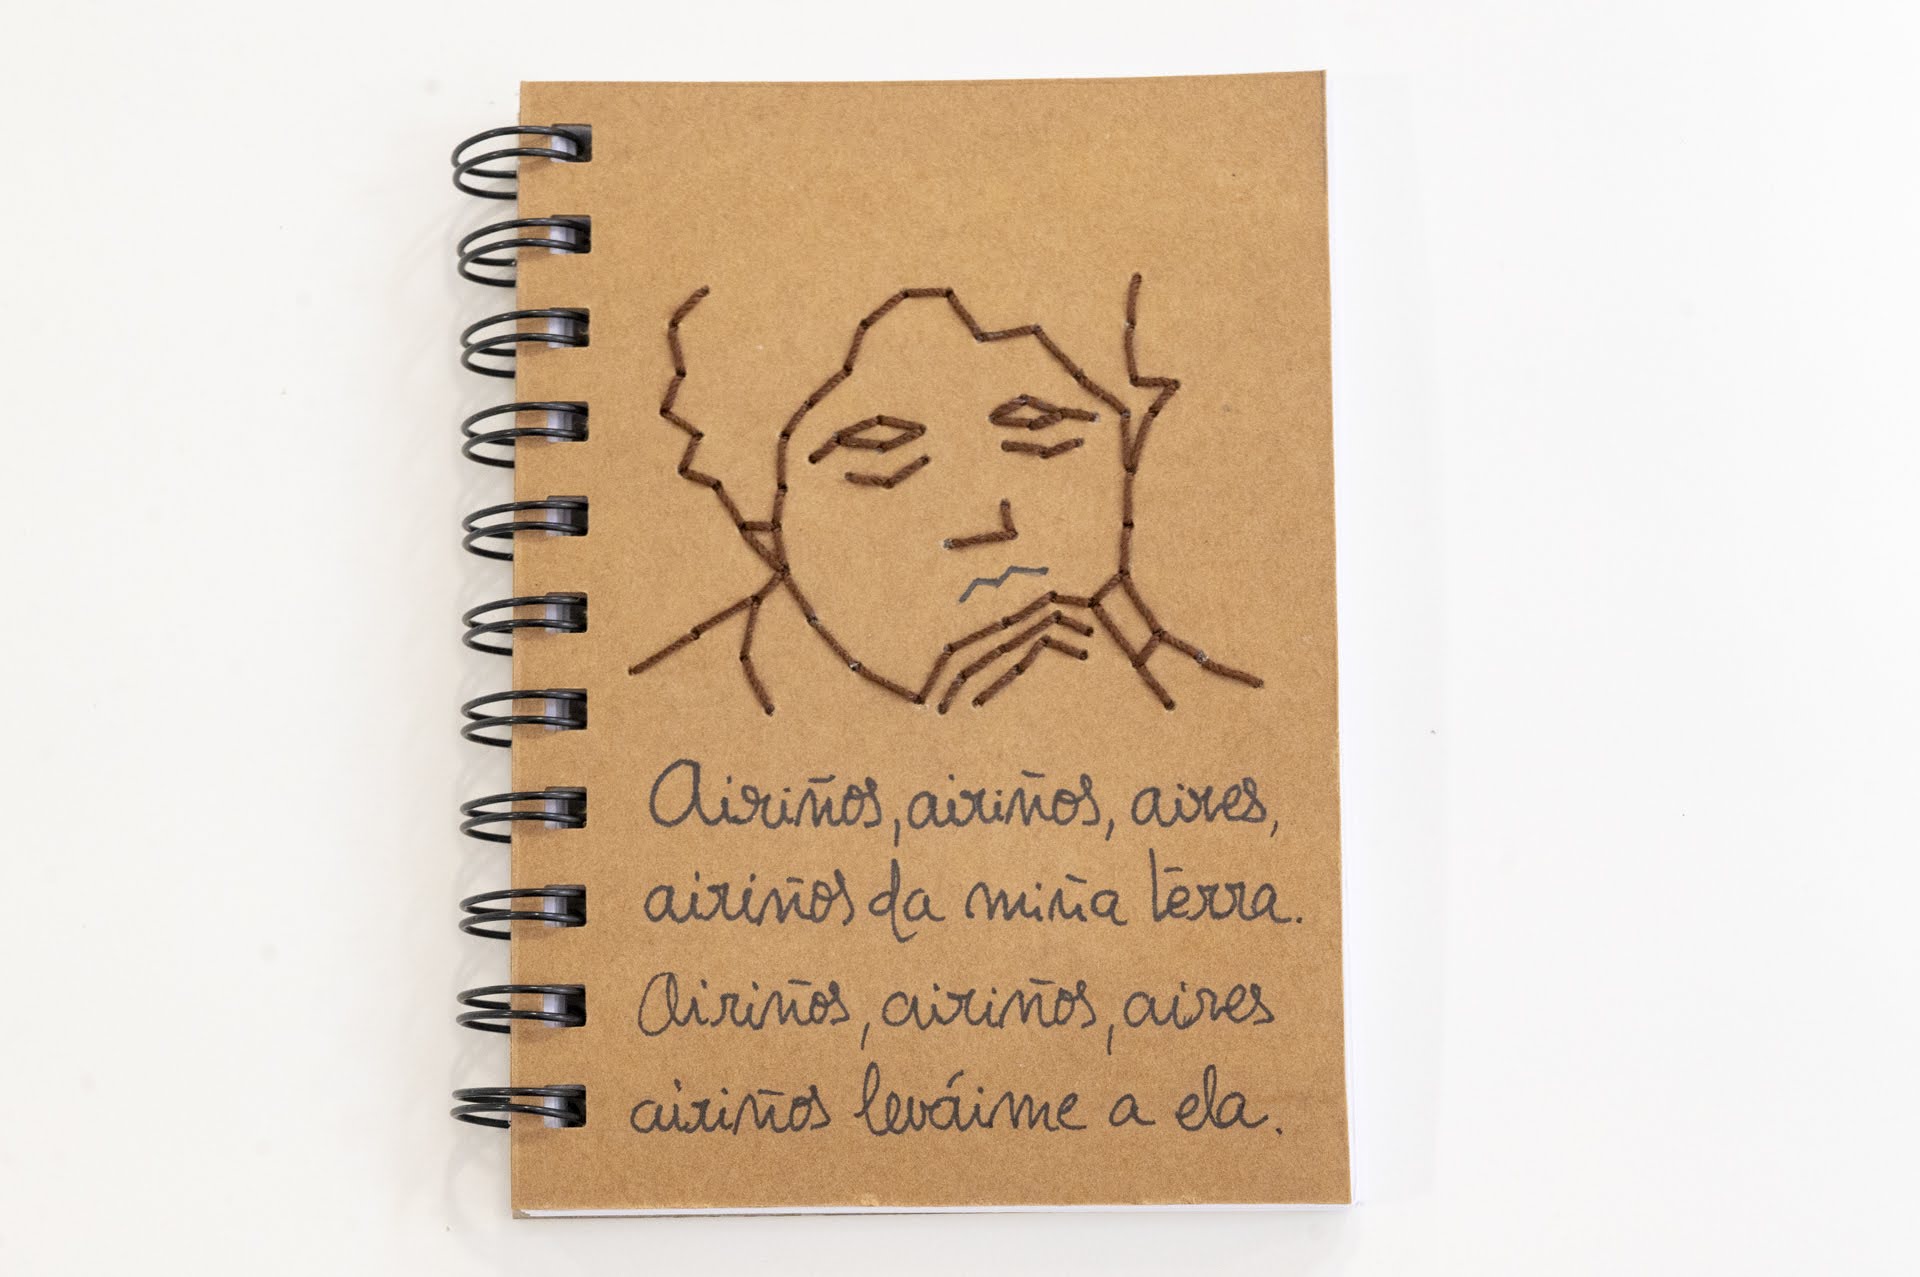 Airiños, airiños, aires,
airiños da miña terra.
Airiños, airiños, aires
airiños leváime a ela.